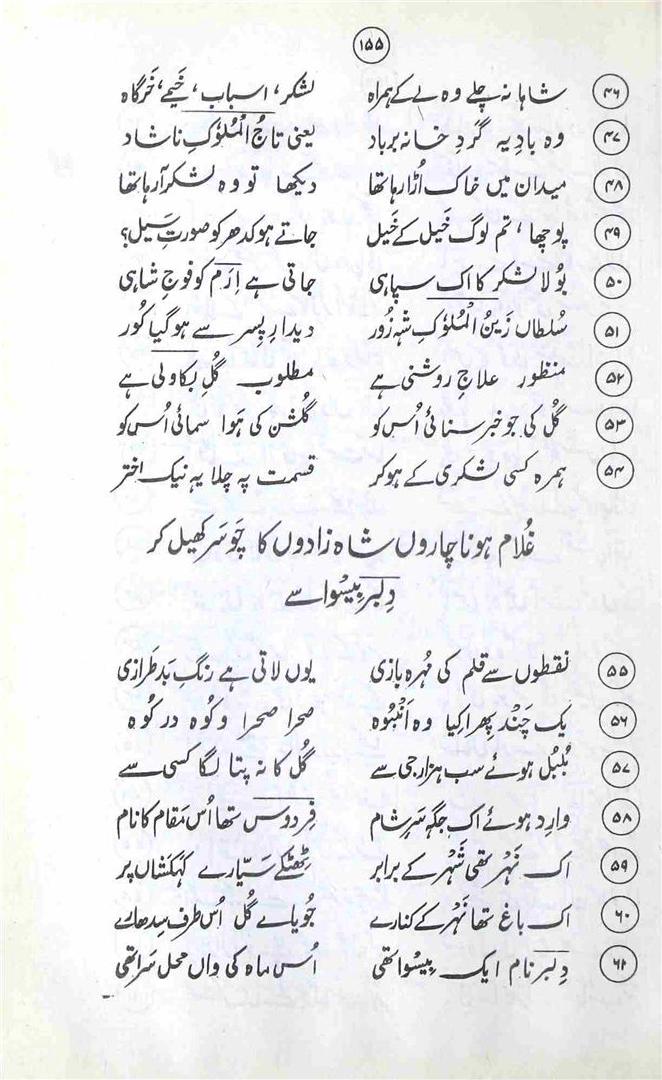 ۱۵۵
۴۶ شاہانہ چلے وہ لے کے ہمراہ لشکر، اسباب، خیمے، خرگاہ
۴۷ وہ بادیہ گردِ خانہ برباد یعنی تاجُ الْمُلُوکِ ناشاد
۴۸ میدان میں خاک اُڑا رہا تھا دیکھا تو وہ لشکر آ رہا تھا
۴۹ پوچھا، تم لوگ خَیل کے خَیل جاتے ہو کدھر کو صورتِ سَیل؟
۵۰ بُولا لشکر کا اک سپاہی جاتی ہے اِرَم کو فوجِ شاہی
۵۱ سُلطاں زَینُ الْمُلُوکِ شہ زُور دیدارِ پِسر سے ہو گیا کُور
۵۲ منظور علاجِ روشنی ہے مطلوب گُلِ بکاولی ہے
۵۳ گُل کی جو خبر سنائی اُس کو گُلشن کی ہَوا سمائی اُس کو
۵۴ ہمرہ کسی لشکری کے ہو کر قسمت پہ چلا یہ نیک اختر
غُلام ہونا چاروں شاہ زادوں کا چَوسَر کھیل کر
دِلبر بیسْوا سے
۵۵ نقطوں سے قلم کی مُہرہ بازی یوں لاتی ہے رنگِ بَد طَرازی
۵۶ یک چَند پِھرا کِیا وہ اَنْبُوہ صحرا صحرا و کُوہ در کُوہ
۵۷ بُلبُل ہوئے سب ہزار جی سے گُل کا نہ پتا لگا کسی سے
۵۸ وارد ہوئے اک جگہ سَرِ شام فِردَوس تھا اُس مَقام کا نام
۵۹ اک نَہْر تھی شَہْر کے برابر ٹِھٹکے سَیّارے کَہکَشاں پر
۶۰ اک باغ تھا نَہْر کے کنارے جُویائے گُل اُس طرف سِدھارے
۶۱ دِلبر نام ایک بیسْوا تھی اُس ماہ کی واں محل سَرا تھی